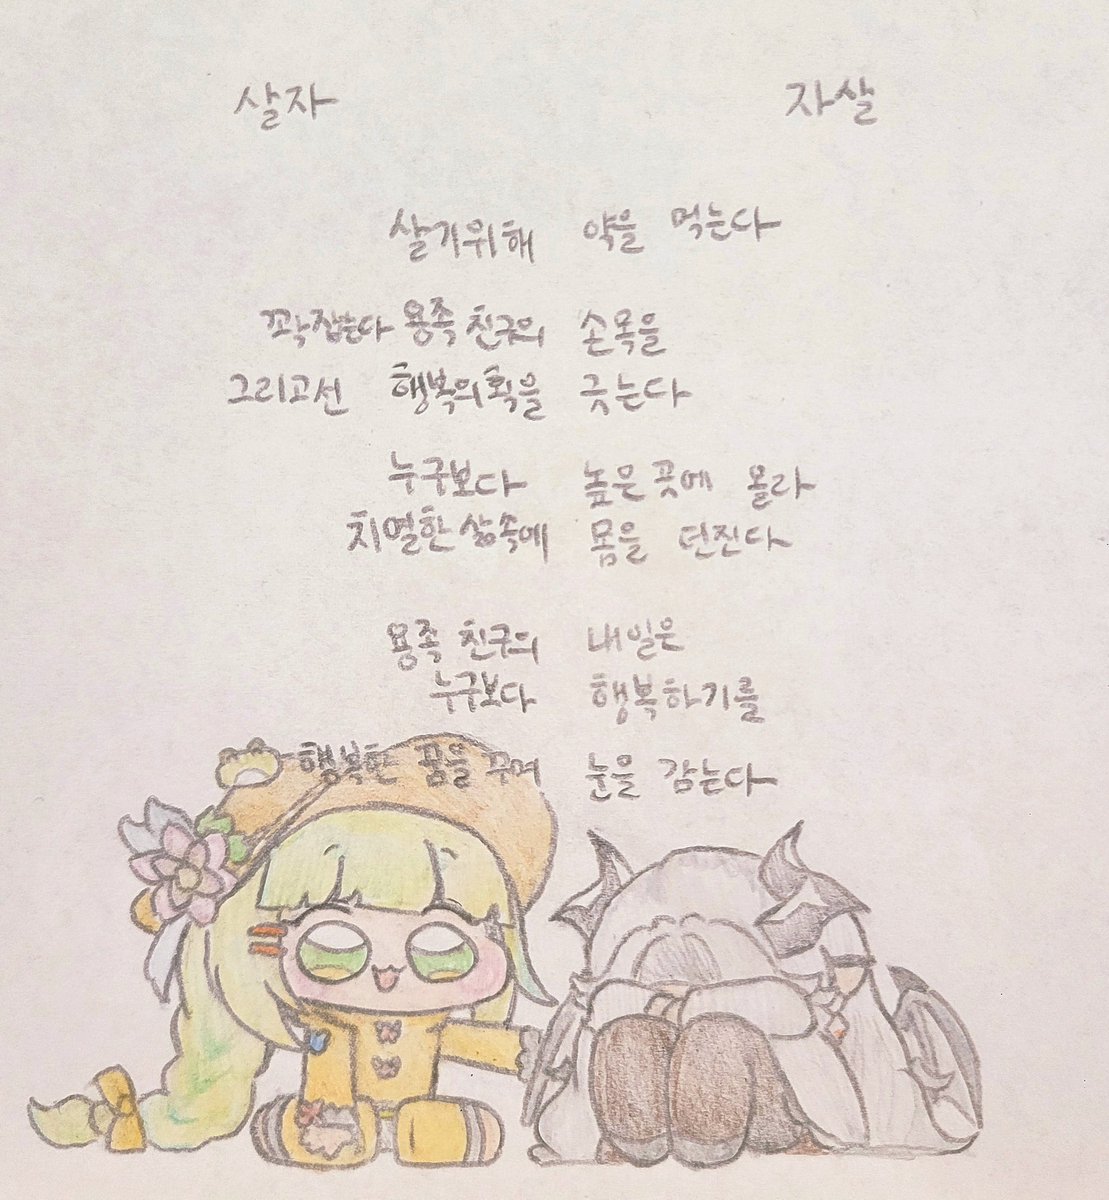 살자 자살
살기위해 약을 먹는다
꽈악잡는다 용족 친구의 손목을
그리고선 행복의획을 긋는다
누구보다 높은 곳에 올라
치열한 삶속에 몸을 던진다
용족 친구의 내일은
누구보다 행복하기를
행복한 꿈을 꾸며 눈을 감는다